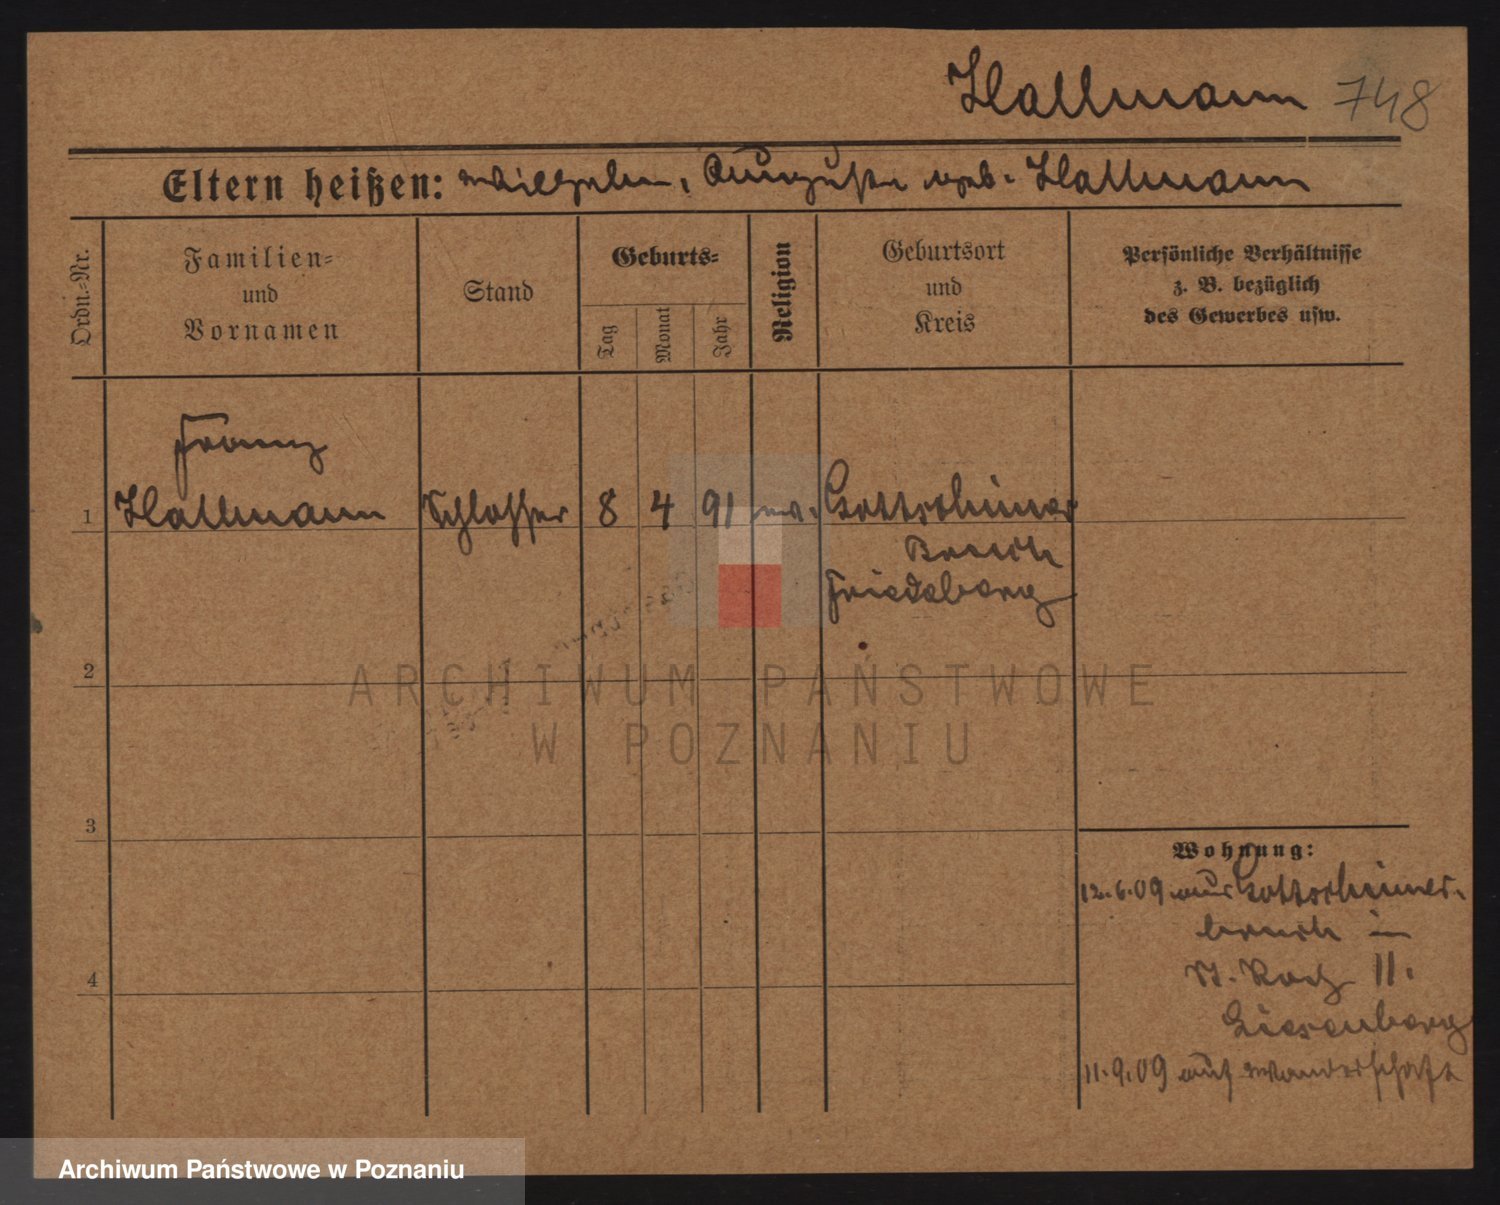 Hallmann 748
Eltern heißen: Wilhelm, Auguste geb. Hallmann
Ordn.-Nr.
Familien-
und
Vornamen
Stand
Geburts-
Tag
Monat
Jahr
Religion
Geburtsort
und
Kreis
Persönliche Verhältnisse
z. B. bezüglich
des Gewerbes usw.
Franz
1 Hallmann Schlosser 8 4 91 ev. Gottschimer
Bruch
Friedeberg
2
3
4
Wohnung:
12.6.09 aus Gottschimer-
bruch in
St. Roch 11.
Giesenberg
11.9.09 auf Wanderschaft
ARCHIWUM PAŃSTWOWE
W POZNANIU
Archiwum Państwowe w Poznaniu